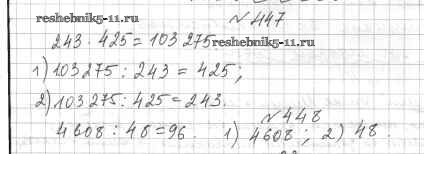 №447
reshebnik5-11.ru
243 · 425 = 103 275.
reshebnik5-11.ru
1) 103275 : 243 = 425;
2) 103275 : 425 = 243.
№448
4608 : 48 = 96. 1) 4608; 2) 48.